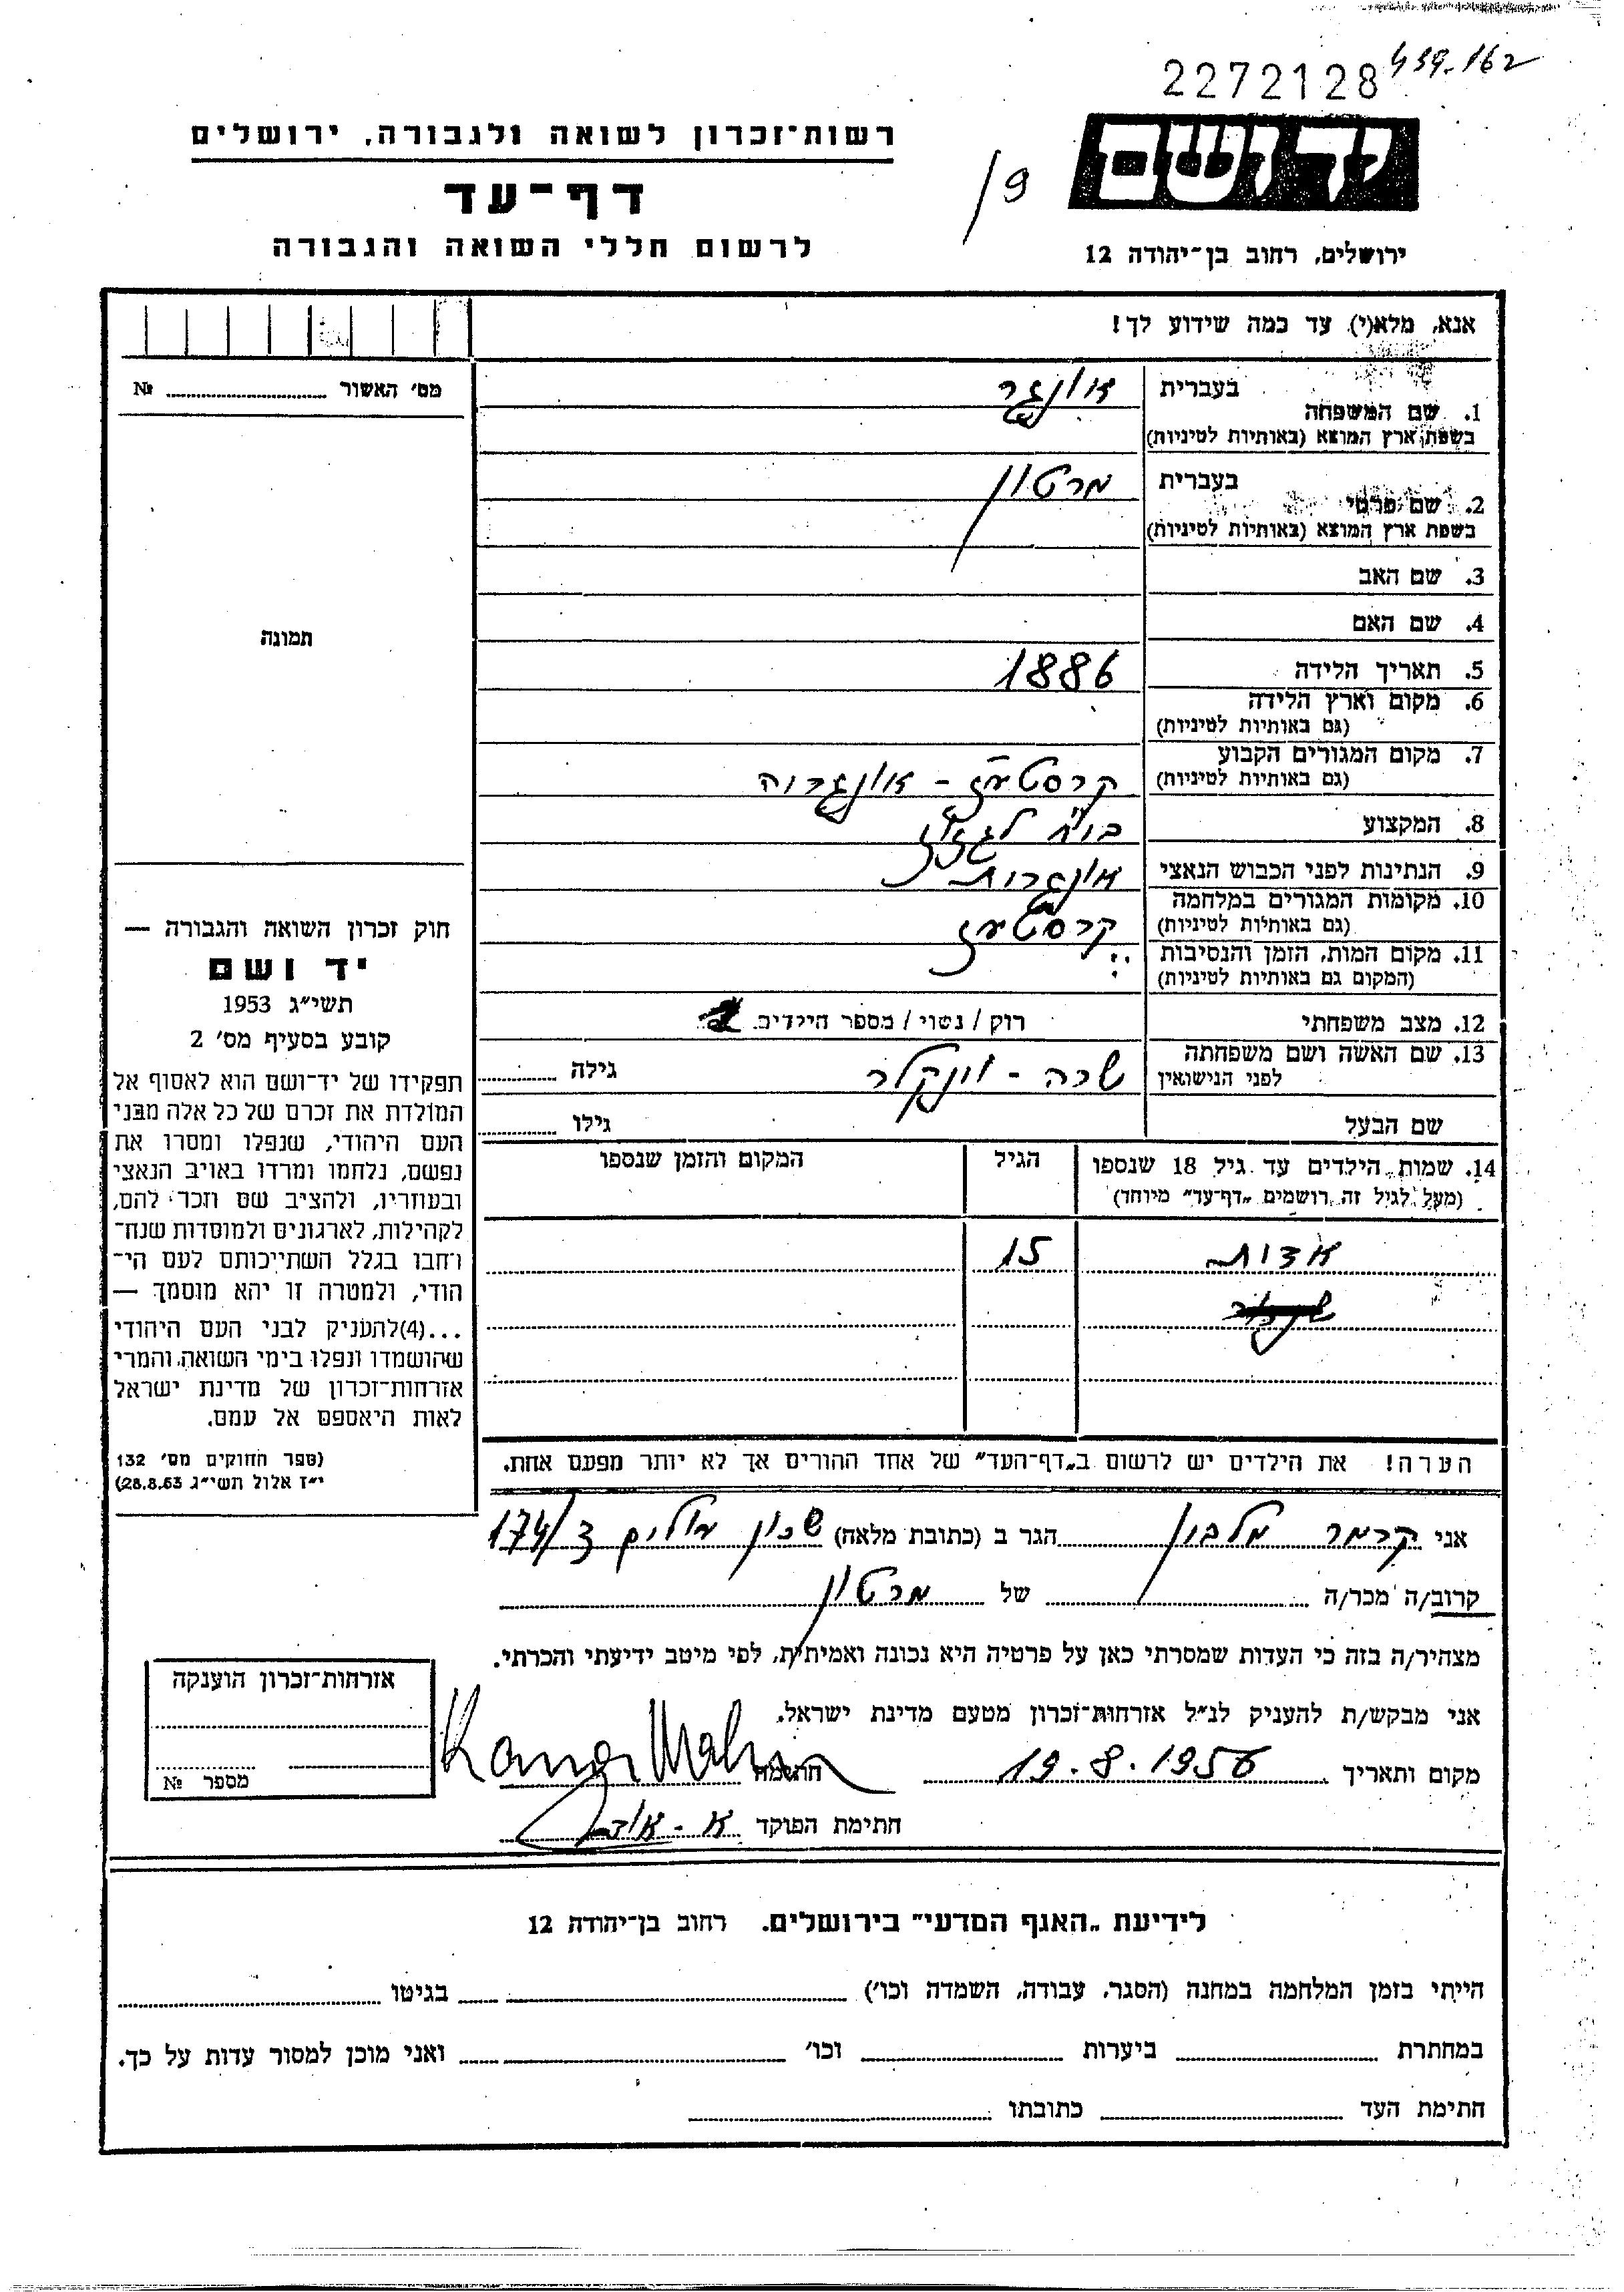 2272128
439-162
רשות־זכרון לשואה ולגבורה, ירושלים
דף־עד
לרשום חללי השואה והגבורה
19
יד ושם
ירושלים, רחוב בן־יהודה 12
אנא, מלא(י) עד כמה שידוע לך!
מס׳ האשור № 
תמונה
1. שם המשפחה
בעברית אונגר
בשפת ארץ המוצא (באותיות לטיניות)
2. שם פרטי
בעברית מרטון
בשפת ארץ המוצא (באותיות לטיניות)
3. שם האב
4. שם האם
5. תאריך הלידה 1886
6. מקום וארץ הלידה
(גם באותיות לטיניות)
7. מקום המגורים הקבוע
(גם באותיות לטיניות)
- אונגרוה
8. המקצוע
9. הנתינות לפני הכבוש הנאצי אונגרית
10. מקומות המגורים במלחמה
(גם באותיות לטיניות)
11. מקום המות, הזמן והנסיבות
(המקום גם באותיות לטיניות)
12. מצב משפחתי רוק / נשוי / מספר הילדים
13. שם האשה ושם משפחתה
לפני הנישואין
שרה - וינקלר גילה
שם הבעל גילו
14. שמות הילדים עד גיל 18 שנספו
(מעל לגיל זה רושמים „דף־עד״ מיוחד)
הגיל
המקום והזמן שנספו
אדית 15
הערה! את הילדים יש לרשום ב„דף־העד״ של אחד ההורים אך לא יותר מפעם אחת.
חוק זכרון השואה והגבורה —
יד ושם
תשי״ג 1953
קובע בסעיף מס׳ 2
תפקידו של יד־ושם הוא לאסוף אל
המולדת את זכרם של כל אלה מבני
העם היהודי, שנפלו ומסרו את
נפשם, נלחמו ומרדו באויב הנאצי
ובעוזריו, ולהציב שם וזכר להם,
לקהילות, לארגונים ולמוסדות שנח־
רחבו בגלל השתייכותם לעם הי־
הודי, ולמטרה זו יהא מוסמך —
...(4)להעניק לבני העם היהודי
שהושמדו ונפלו בימי השואה והמרי
אזרחות־זכרון של מדינת ישראל
לאות היאספם אל עמם.
(ספר החוקים מס׳ 132
י״ז אלול תשי״ג 28.8.53)
אני קרמר הגר ב (כתובת מלאה) שכון 174/3
קרוב/ה מכר/ה של מרטון
מצהיר/ה בזה כי העדות שמסרתי כאן על פרטיה היא נכונה ואמיתית, לפי מיטב ידיעתי והכרתי.
אני מבקש/ת להעניק לנ״ל אזרחות־זכרון מטעם מדינת ישראל.
מקום ותאריך 19.8.1956 חתימה
חתימת הפוקד
אזרחות־זכרון הוענקה
מספר №
לידיעת „האגף המדעי״ בירושלים. רחוב בן־יהודה 12
הייתי בזמן המלחמה במחנה (הסגר, עבודה, השמדה וכו׳) בגיטו
במחתרת ביערות וכו׳ ואני מוכן למסור עדות על כך.
חתימת העד כתובתו